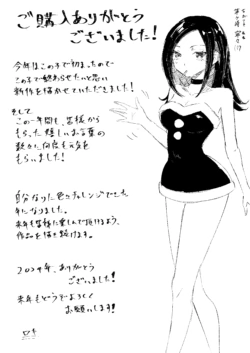 ご購入ありがとう
ございました！
今年はこの子で初まったので
この子で終わらせたいと思い
新作を描かせていただきました！
そして
この一年間も、皆様から
もらった嬉しいお言葉の
数々に何度も元気を
もらいました！
自分なりに色々チャレンジできた
年になりました。
来年も皆様に楽しんで頂けるよう、
作品を描き続けます。
2024年、ありがとう
ございました！
来年もどうぞよろしく
お願いします！